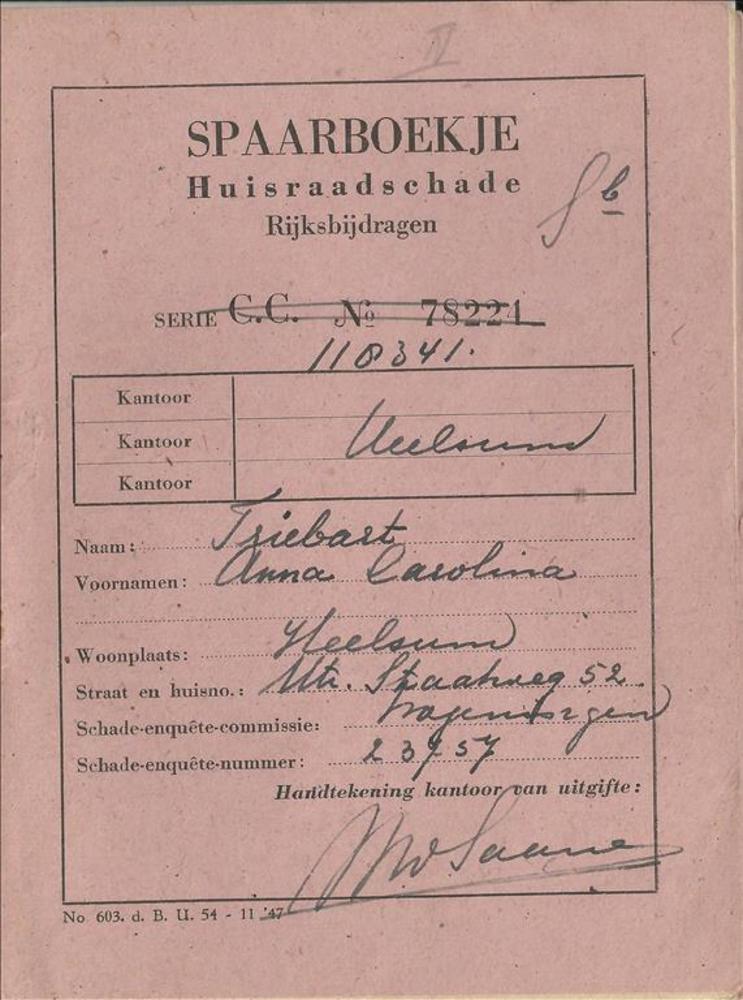 IV
SPAARBOEKJE
Huisraadschade
Rijksbijdragen
SERIE C.C. No 78224
118341.
Kantoor
Kantoor Heelsum
Kantoor
Naam: Triebart
Voornamen: Anna Carolina
Woonplaats: Heelsum
Straat en huisno.: Utr. Straatweg 52
Schade-enquête-commissie: Wageningen
Schade-enquête-nummer:
Handtekening kantoor van uitgifte:
No 603. d. B. U. 54 - 11 '47